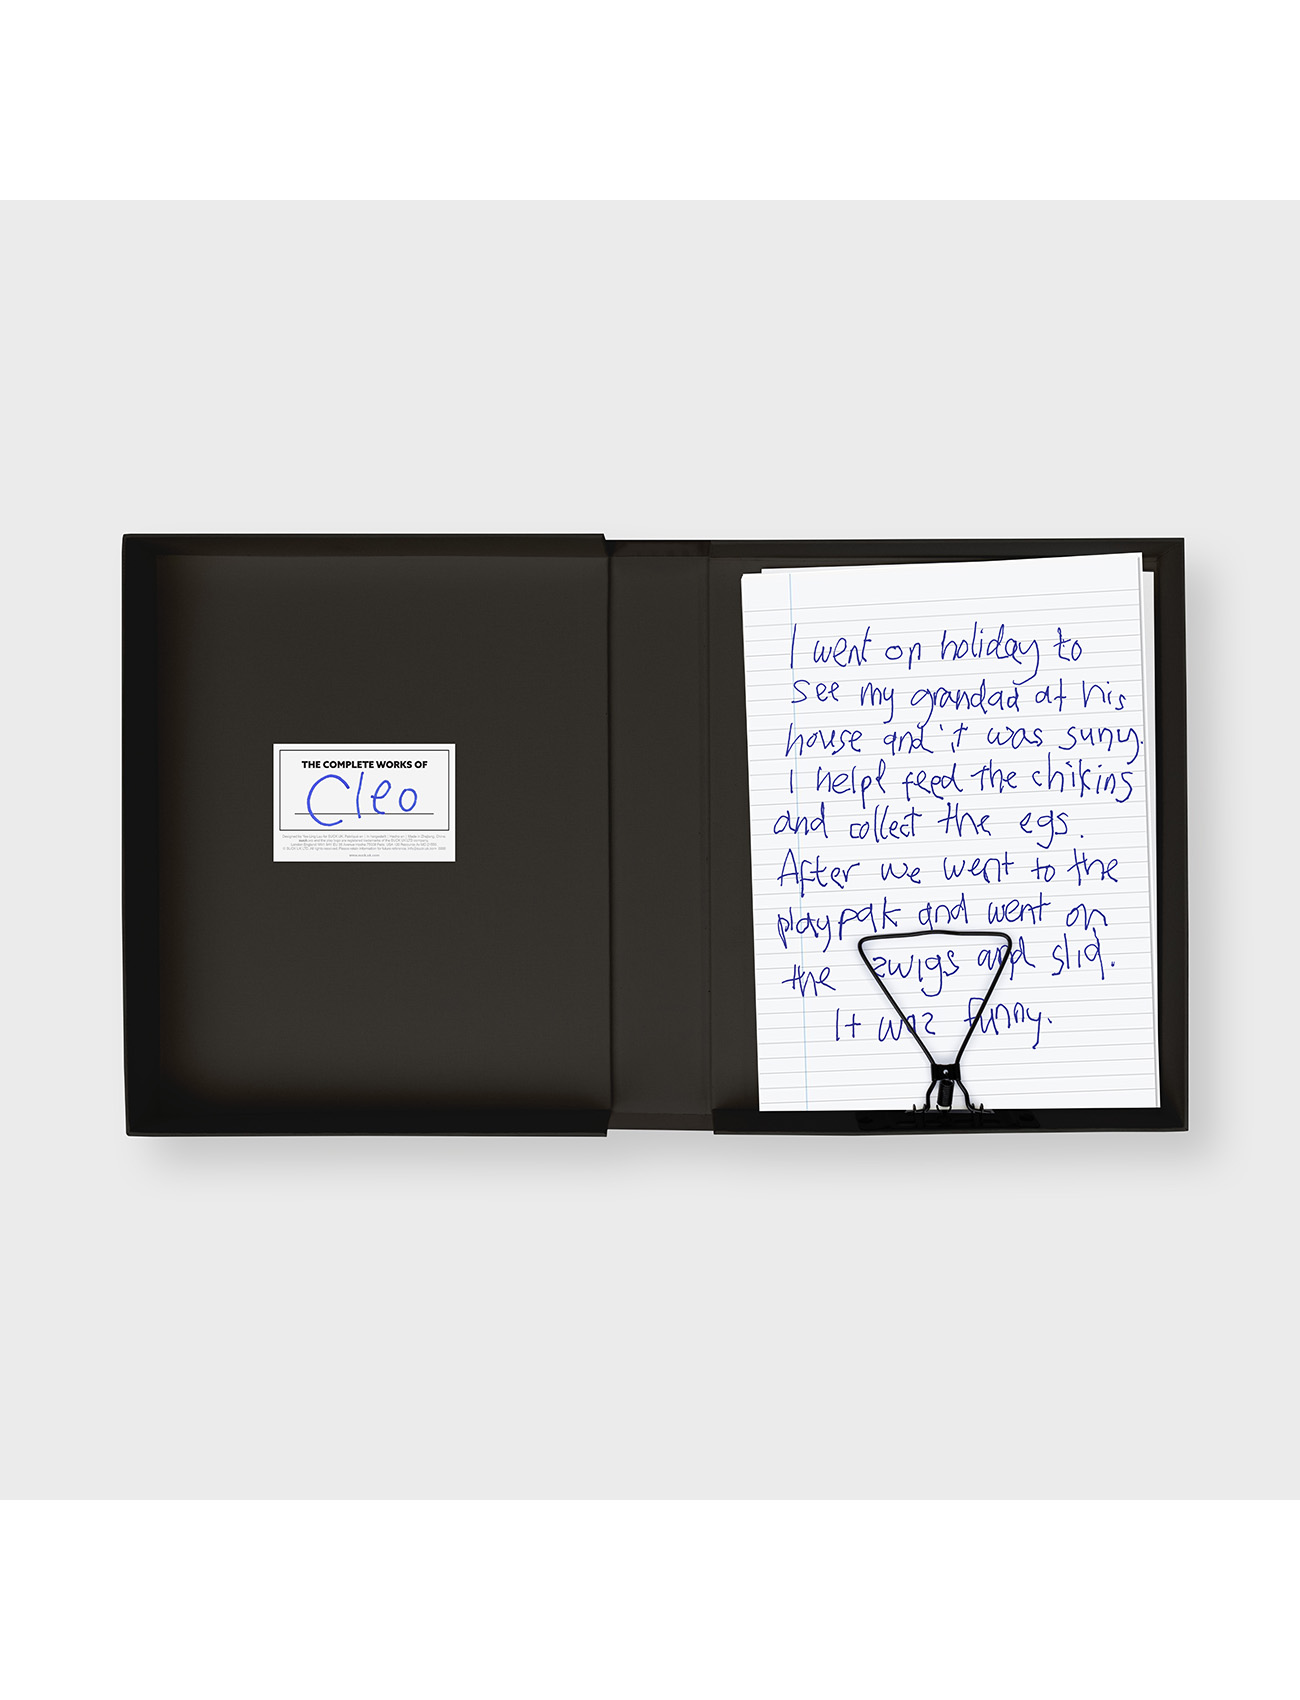 THE COMPLETE WORKS OF
Cleo
www.suck.uk.com
I went on holiday to
see my grandad at his
house and it was suny.
I helpt feed the chiking
and collect the egs.
After we went to the
playpak and went on
the swigs and slid.
It was funny.